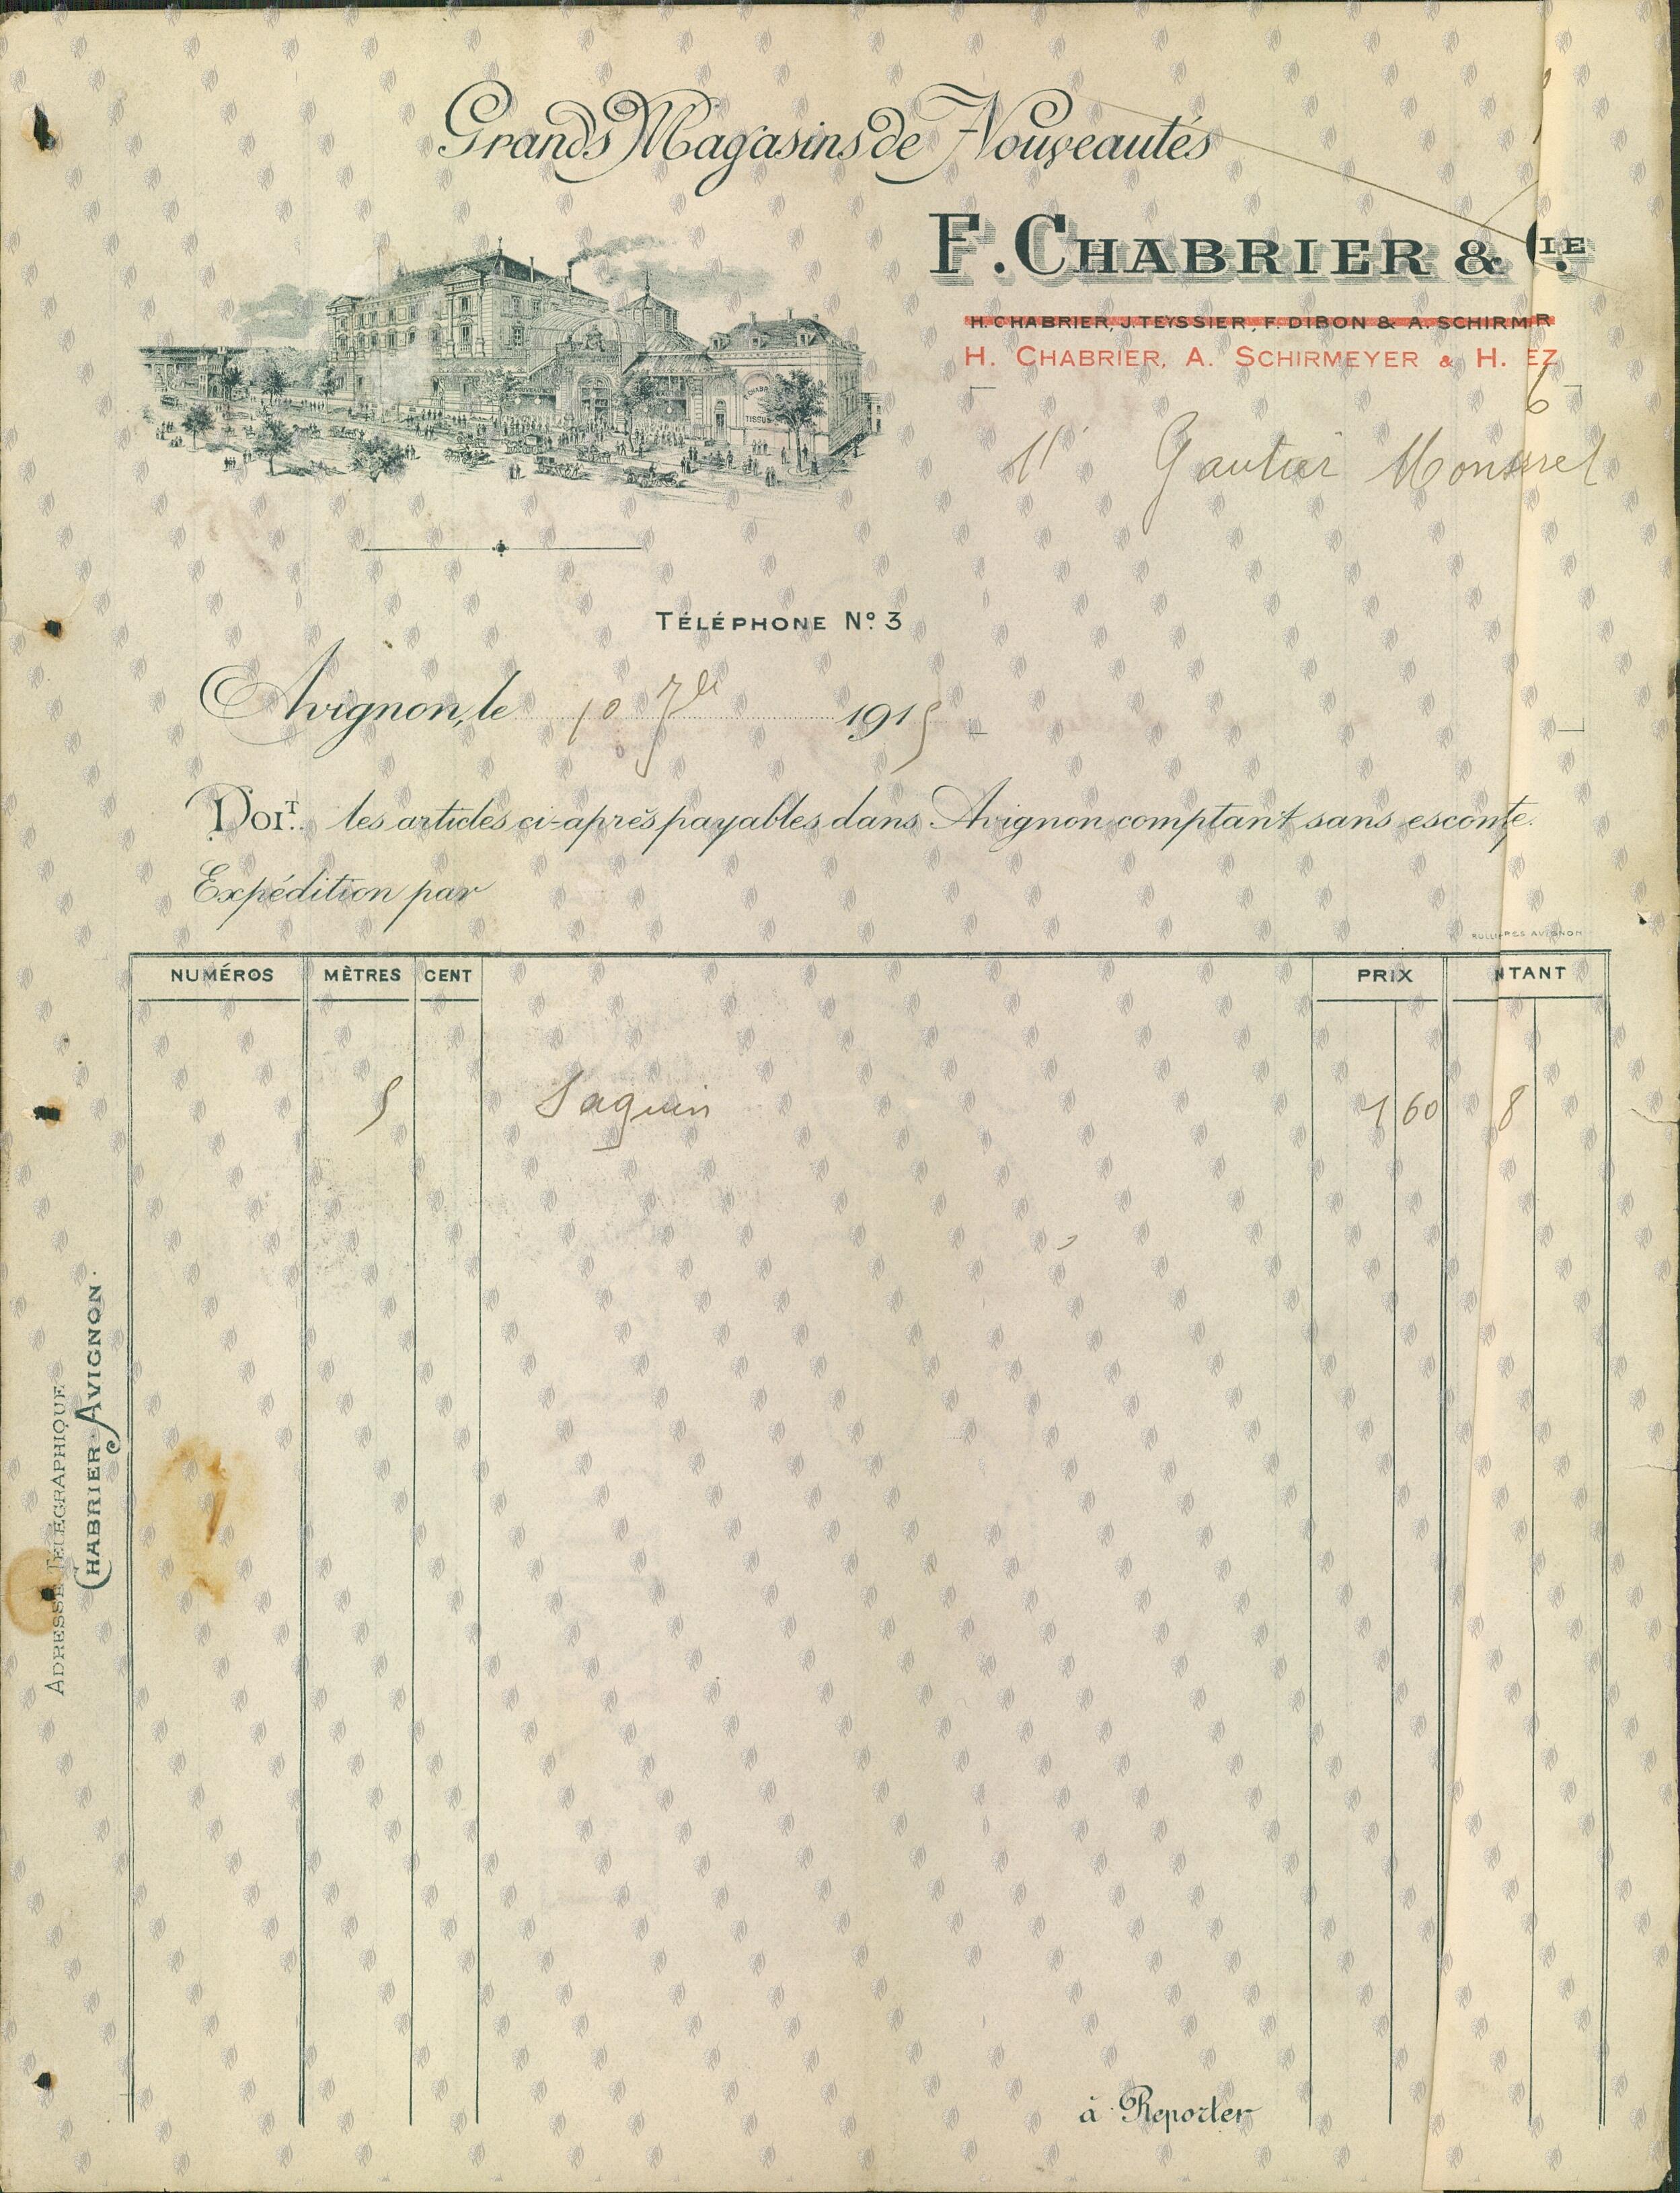 Grands Magasins de Nouveautés
F. CHABRIER & CIE.
H. CHABRIER, J. TEYSSIER, F. DIBON & A. SCHIRM R
H. CHABRIER, A. SCHIRMEYER & H. EZ
Gautier
TÉLÉPHONE Nº 3
Avignon, le 10 7bre 1915
DOIT. les articles ci-après payables dans Avignon comptant sans escompte.
Expédition par
AVIGNON
NUMÉROS MÈTRES CENT PRIX NTANT
5 Saguin 1 60 8
F. CHABR
TISSUS
ADRESSE TÉLÉGRAPHIQUE
CHABRIER-AVIGNON.
à Reporter